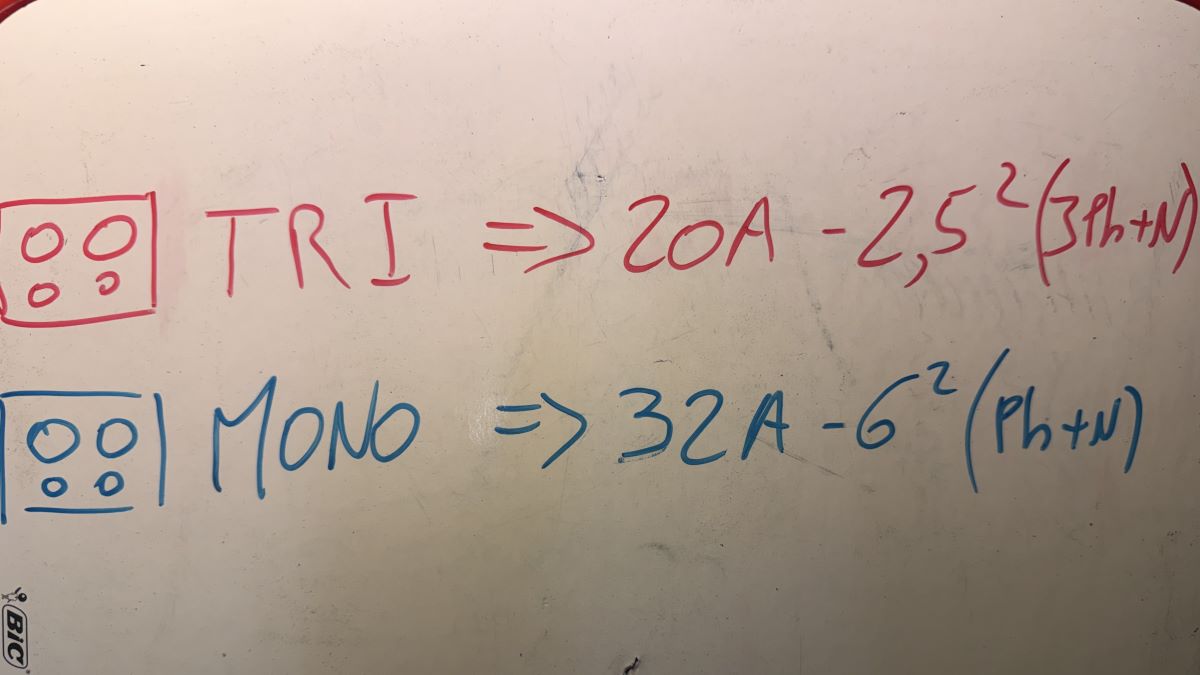 TRI => 20A - 2,5² (3Ph+N)
MONO => 32A - 6² (Ph+N)
BIC